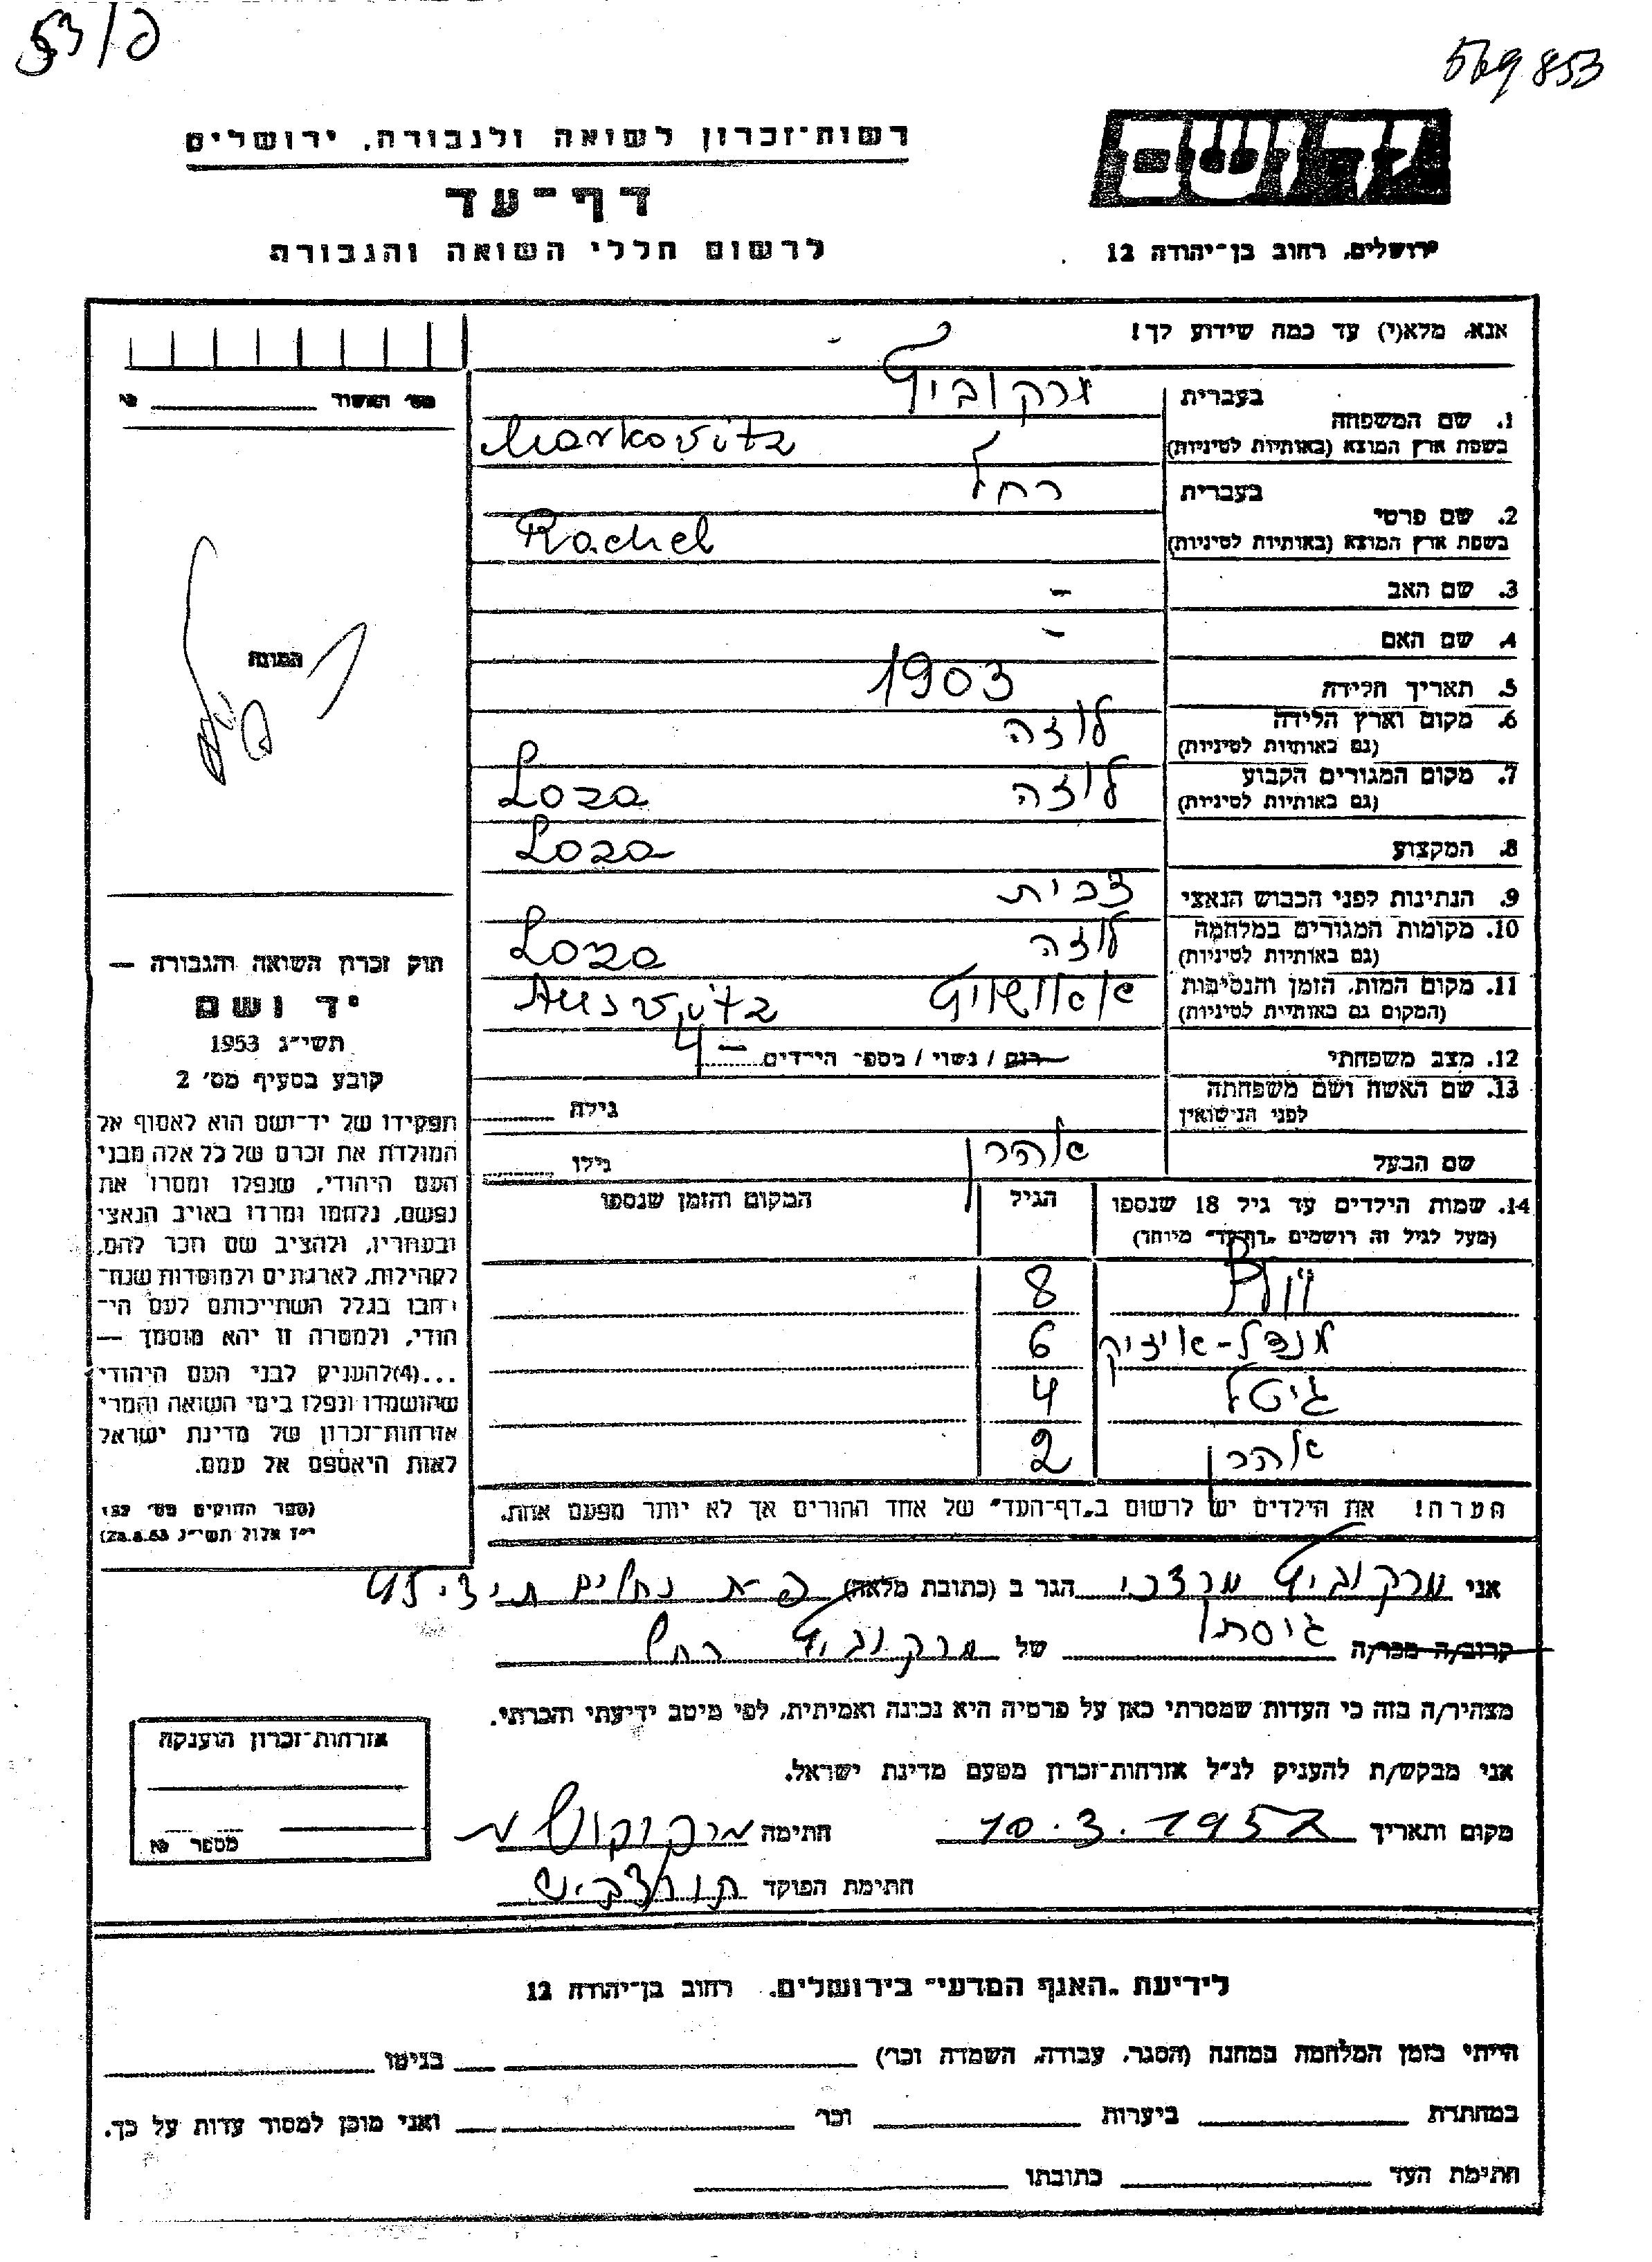 53/פ
569853
רשות־זכרון לשואה ולגבורה, ירושלים
דף־עד
לרשום חללי השואה והגבורה
יד ושם
ירושלים, רחוב בן־יהודה 12
אנא, מלא(י) עד כמה שידוע לך!
מס׳ האשור
1. שם המשפחה
בעברית
מרקוביץ
בשפת ארץ המוצא (באותיות לטיניות)
Markovitz
2. שם פרטי
בעברית
רחל
בשפת ארץ המוצא (באותיות לטיניות)
Rachel
3. שם האב -
4. שם האם -
5. תאריך הלידה 1903
6. מקום וארץ הלידה לוזה
(גם באותיות לטיניות)
7. מקום המגורים הקבוע לוזה Loza
(גם באותיות לטיניות)
8. המקצוע Loza
9. הנתינות לפני הכבוש הנאצי צכית
10. מקומות המגורים במלחמה לוזה Loza
(גם באותיות לטיניות)
11. מקום המות, הזמן והנסיבות אושוויץ Ausvitz
(המקום גם באותיות לטיניות)
12. מצב משפחתי רוק / נשוי / מספר הילדים 4 -
13. שם האשה ושם משפחתה
לפני הנישואין
גילה
שם הבעל אהרן גילו
14. שמות הילדים עד גיל 18 שנספו
(מעל לגיל זה רושמים "דף־עד" מיוחד)
הגיל
המקום והזמן שנספו
8
מנדל-איזיק 6
גיטל 4
אהרן 2
הערה! את הילדים יש לרשום ב"דף־העד" של אחד ההורים אך לא יותר מפעם אחת.
התמונה
חוק זכרון השואה והגבורה —
יד ושם
תשי״ג 1953
קובע בסעיף מס׳ 2
תפקידו של יד־ושם הוא לאסוף אל
המולדת את זכרם של כל אלה מבני
העם היהודי, שנפלו ומסרו את
נפשם, נלחמו ומרדו באויב הנאצי
ובעוזריו, ולהציב שם וזכר להם,
לקהילות, לארגונים ולמוסדות שנח־
רבו בגלל השתייכותם לעם הי־
הודי, ולמטרה זו יהא מוסמך —
...(4) להעניק לבני העם היהודי
שהושמדו ונפלו בימי השואה והמרי
אזרחות־זכרון של מדינת ישראל
לאות היאספם אל עמם.
(ספר החוקים מס׳ 132
י״ז אלול תשי״ג 28.8.53)
אני מרקוביץ מרדכי הגר ב (כתובת מלאה) פ״ת נחלים
קרוב/ה מכר/ה גיסתו של מרקוביץ רחל
מצהיר/ה בזה כי העדות שמסרתי כאן על פרטיה היא נכונה ואמיתית, לפי מיטב ידיעתי והכרתי.
אני מבקש/ת להעניק לנ״ל אזרחות־זכרון מטעם מדינת ישראל.
מקום ותאריך 10.3.1957 חתימה
חתימת הפוקד
אזרחות־זכרון הוענקה
מספר
לידיעת "האגף המדעי" בירושלים, רחוב בן־יהודה 12
הייתי בזמן המלחמה במחנה (הסגר, עבודה, השמדה וכו׳) בגיטו
במחתרת ביערות וכו׳ ואני מוכן למסור עדות על כך.
חתימת העד כתובתו